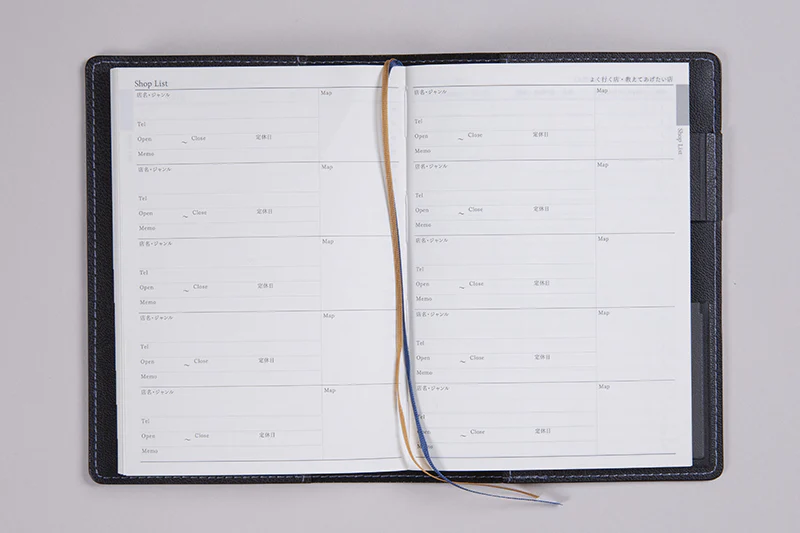 Shop List
店名・ジャンル
Map
Tel
Open ~ Close 定休日
Memo
店名・ジャンル
Map
Tel
Open ~ Close 定休日
Memo
店名・ジャンル
Map
Tel
Open ~ Close 定休日
Memo
店名・ジャンル
Map
Tel
Open ~ Close 定休日
Memo
店名・ジャンル
Map
Tel
Open ~ Close 定休日
Memo
よく行く店・教えてあげたい店
店名・ジャンル
Map
Tel
Open ~ Close 定休日
Memo
店名・ジャンル
Map
Tel
Open ~ Close 定休日
Memo
店名・ジャンル
Map
Tel
Open ~ Close 定休日
Memo
店名・ジャンル
Map
Tel
Open ~ Close 定休日
Memo
店名・ジャンル
Map
Tel
Open ~ Close 定休日
Memo
Shop List